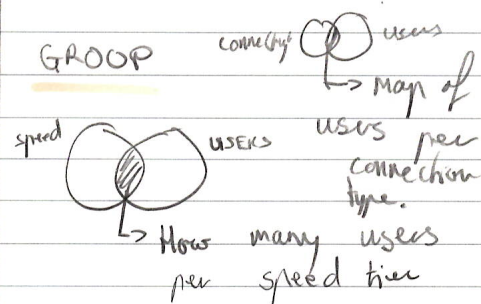 GROOP
users
map of
users per
connection
type.
speed
USERS
How many users
per speed tier